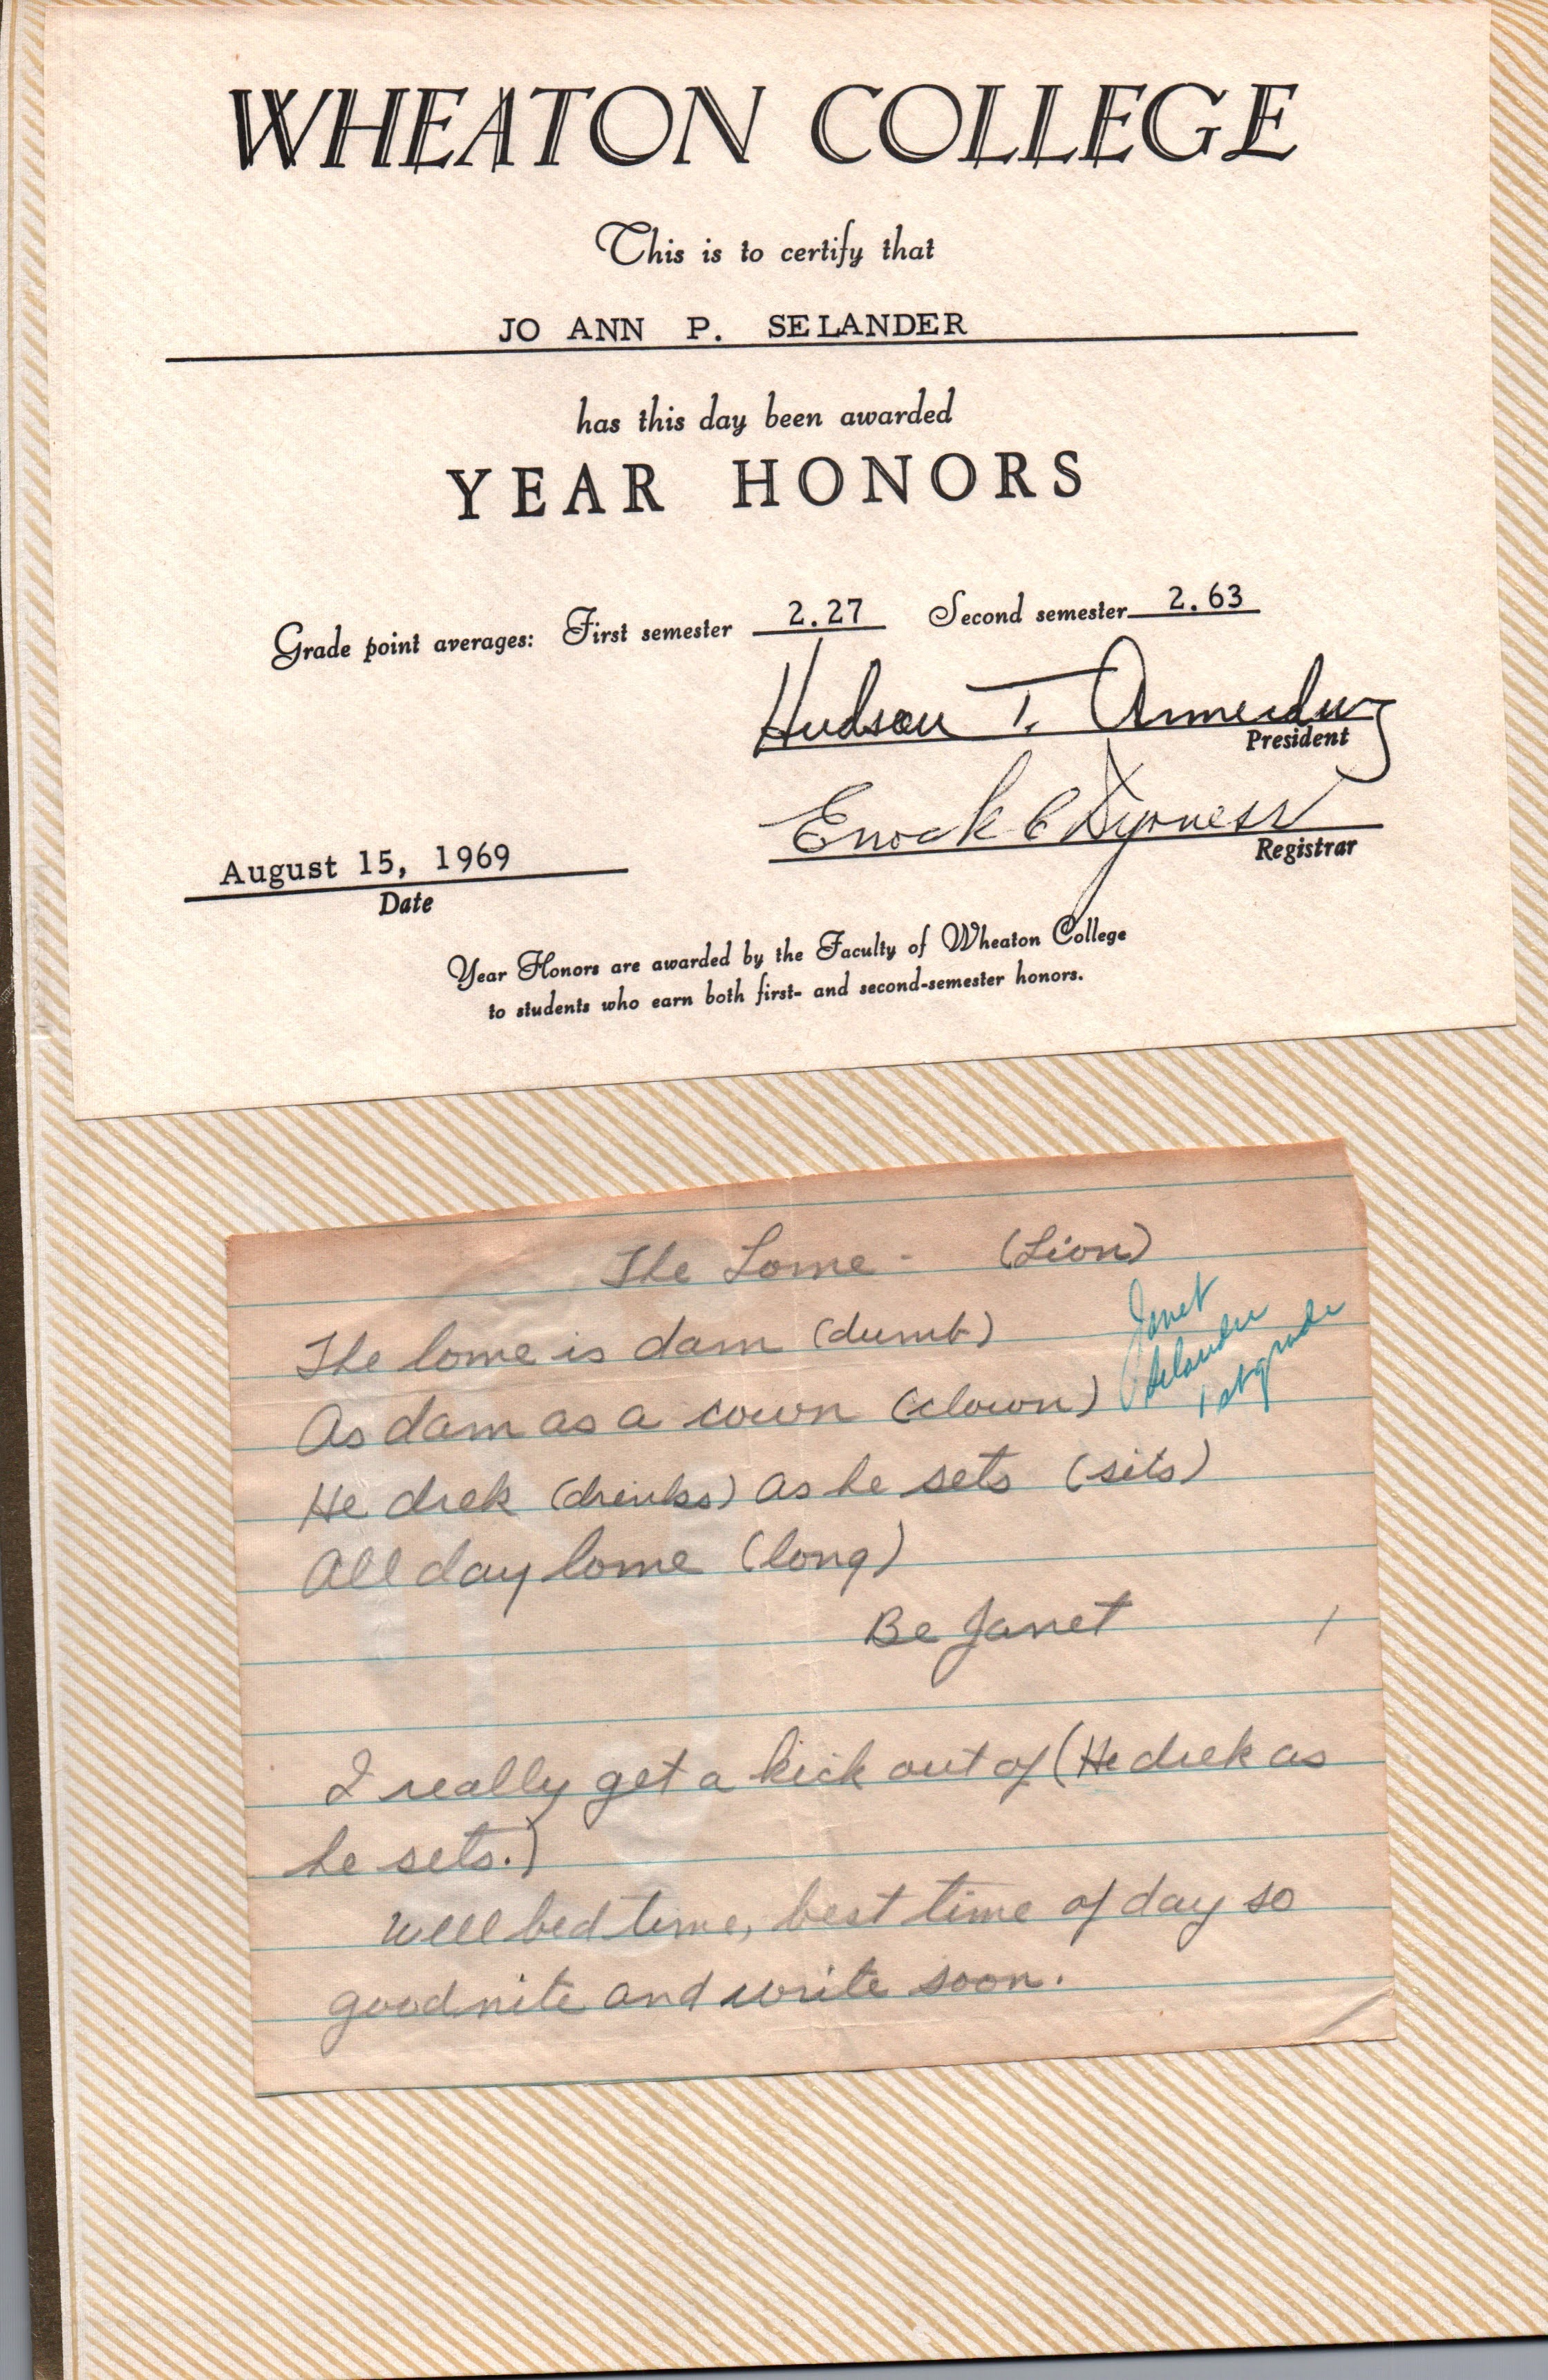 WHEATON COLLEGE
This is to certify that
JO ANN P. SELANDER
has this day been awarded
YEAR HONORS
Grade point averages: First semester 2.27 Second semester 2.63
Hudson T. Armerding
President
Enock C Dyrness
Registrar
August 15, 1969
Date
Year Honors are awarded by the Faculty of Wheaton College
to students who earn both first- and second-semester honors.
The Lome - (Lion)
The lome is dam (dumb)
Janet
Selander
1st grade
As dam as a cown (clown)
He drek (drinks) as he sets (sits)
All day lome (long)
Be Janet
I really get a kick out of (He drek as
he sets.)
Well bed time, best time of day so
goodnite and write soon.